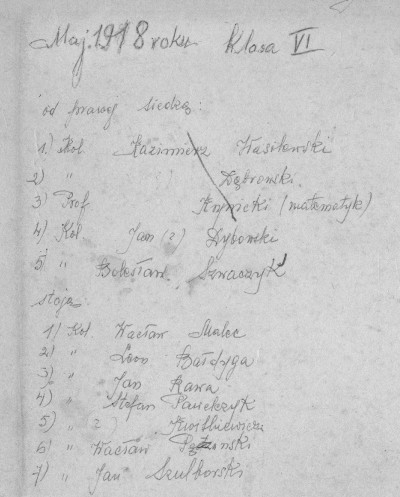 Maj. 1918 roku Klasa VI
od prawej siedzą:
1.) Kol Kazimierz Wasilewski
2) " Dąbrowski.
3) Prof Krynicki (matematyk)
4) Kol Jan (?) Dybowski
5) " Bolesław Szwaczyk
stoją
1) Kol. Wacław Malec
2) " Leon Bałdyga
3) " Jan Kawa
4) " Stefan Pawełczyk
5) " ?
6) " Wacław
7) " Jan Szulborski